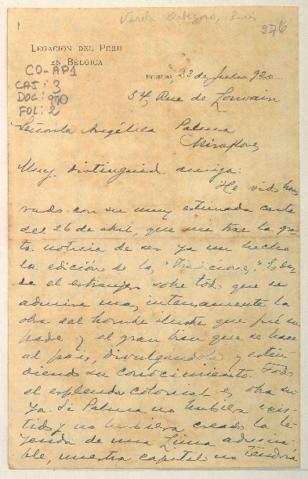 Varela Orbegoso, Luis
976
LEGACIÓN DEL PERÚ
EN BÉLGICA
CO-AP1
CAJ: 3
DOC: 970
FOL: 2
22 de Julio 920
34, Rue de Louvain
Señorita Angélica Palma
Miraflores
Muy distinguida amiga:
He sido hon
rado con su muy estimada carta
del 26 de abril, que me trae la gra
ta noticia de ser ya un hecho
la edición de la "Tradiciones". Es des
de el extranjero sobre todo que se
admira mas intensamente la
obra del hombre ilustre que fué su
padre y el gran bien que se hace
al país, divulgándola y exten
diendo su conocimiento. Todo
el esplendor colonial es obra su
ya. Si Palma no hubiera exis
tido y no hubiera creado la le
yenda de una Lima admira
ble, nuestra capital no tendría